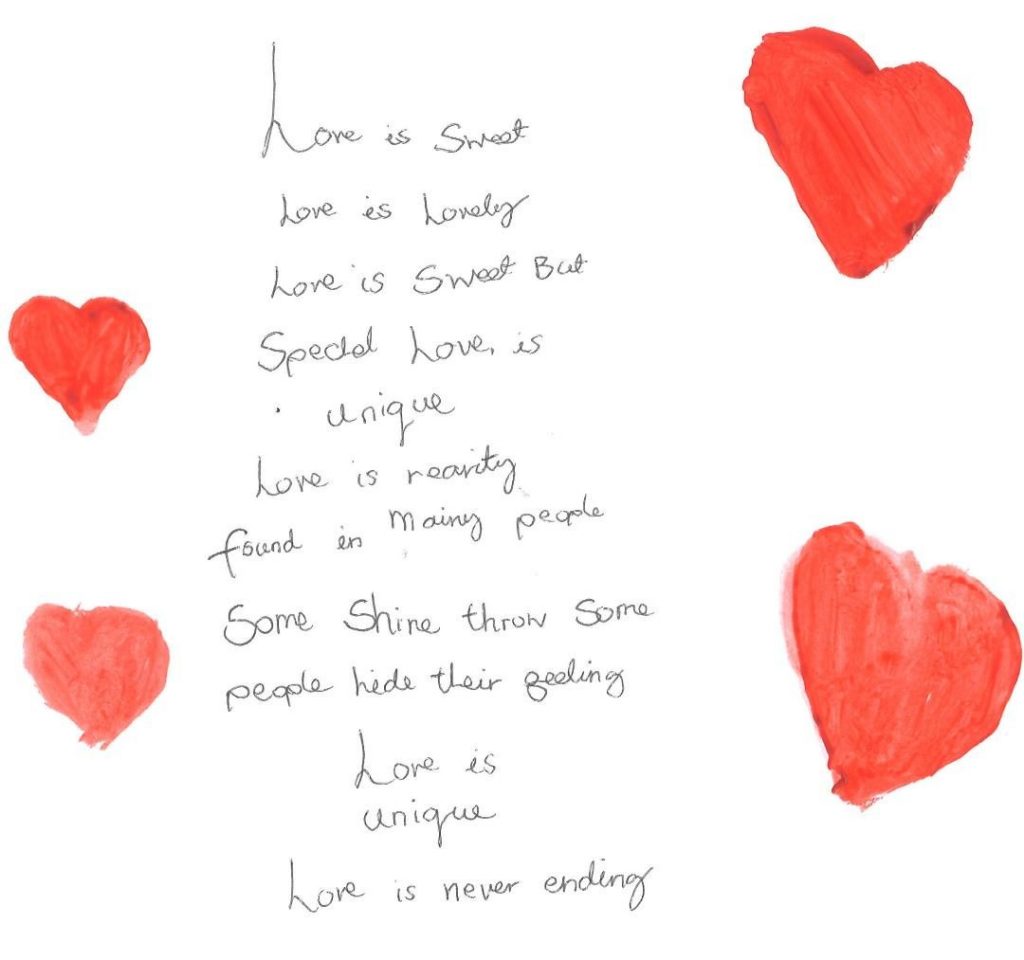 Love is Sweet
Love is Lovely
Love is Sweet But
Special Love, is
unique
Love is rearity
found in Mainy people
Some Shine throw Some
people hide their feeling
Love is
unique
Love is never ending